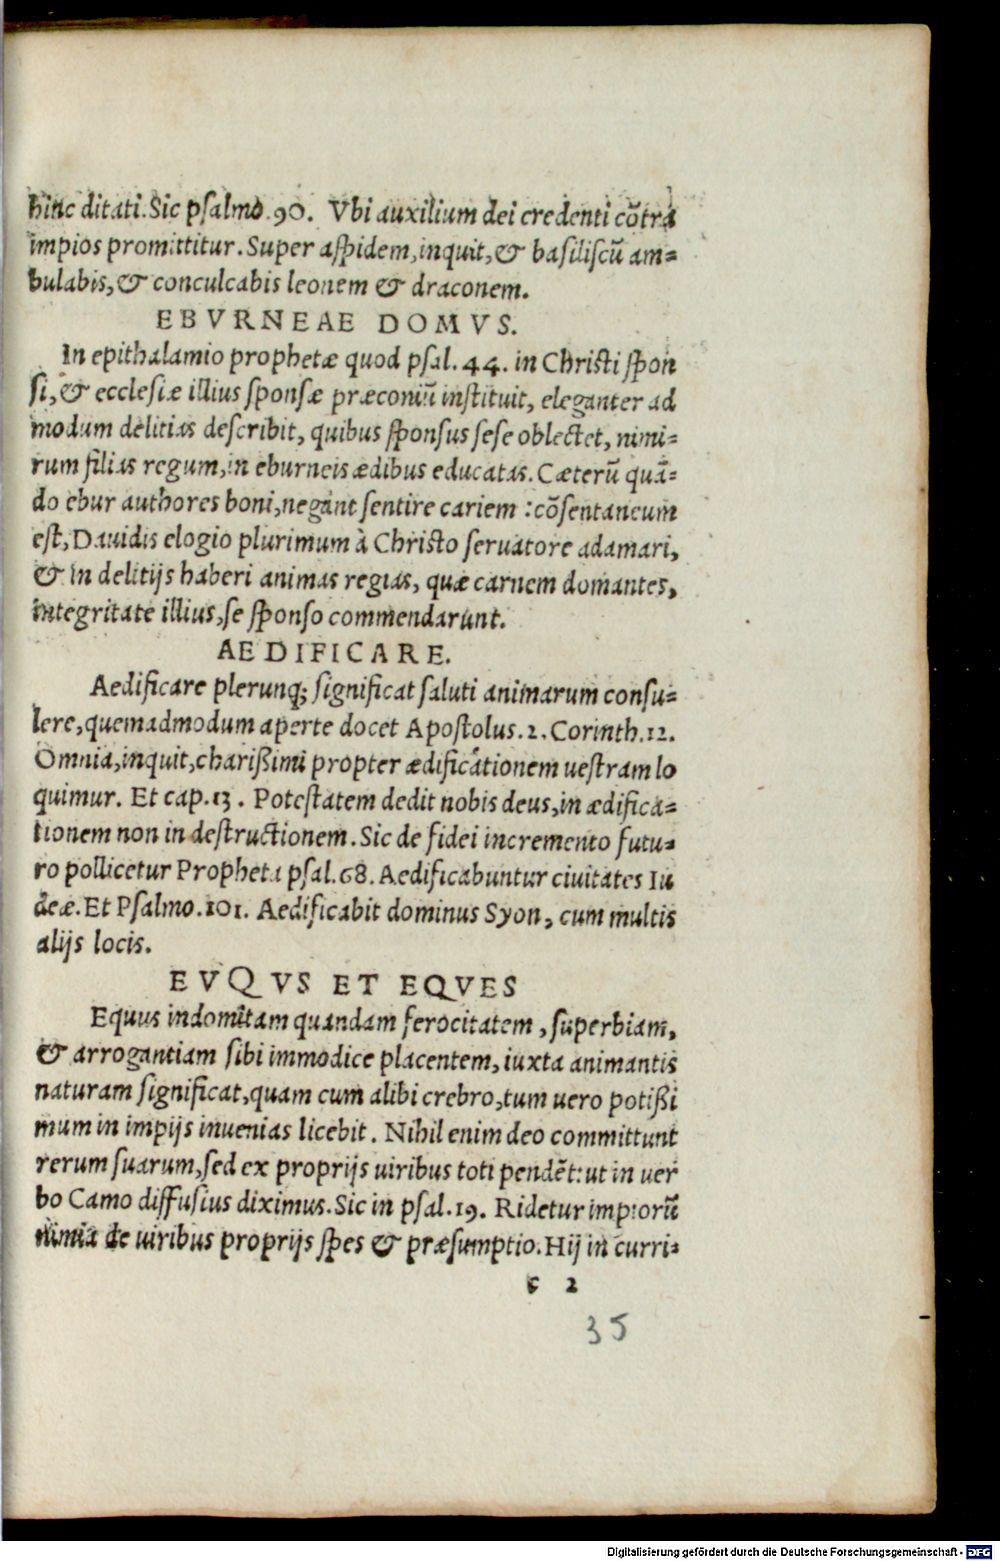 hinc ditati. Sic psalmo .90. Vbi auxilium dei credenti cõtra
impios promittitur. Super aspidem, inquit, & basiliscũ am=
bulabis, & conculcabis leonem & draconem.
EBVRNEAE DOMVS.
In epithalamio prophetæ quod psal. 44. in Christi spon
si, & ecclesiæ illius sponsæ præconiũ instituit, eleganter ad
modum delitias describit, quibus sponsus sese oblectet, nimi=
rum filias regum, in eburneis ædibus educatas. Cæterũ quã=
do ebur authores boni, negant sentire cariem : cõsentaneum
est, Dauidis elogio plurimum à Christo seruatore adamari,
& in delitijs haberi animas regias, quæ carnem domantes,
integritate illius, se sponso commendarunt.
AEDIFICARE.
Aedificare plerunq; significat saluti animarum consu=
lere, quemadmodum aperte docet Apostolus. 2. Corinth. 12.
Omnia, inquit, charißimi propter ædificationem uestram lo
quimur. Et cap. 13. Potestatem dedit nobis deus, in ædifica=
tionem non in destructionem. Sic de fidei incremento futu=
ro pollicetur Propheta psal. 68. Aedificabuntur ciuitates Iu
deæ. Et Psalmo. 101. Aedificabit dominus Syon, cum multis
alijs locis.
EVQVS ET EQVES
Equus indomitam quandam ferocitatem, superbiam,
& arrogantiam sibi immodice placentem, iuxta animantis
naturam significat, quam cum alibi crebro, tum uero potißi
mum in impijs inuenias licebit. Nihil enim deo committunt
rerum suarum, sed ex proprijs uiribus toti pendẽt: ut in uer
bo Camo diffusius diximus. Sic in psal. 19. Ridetur impiorũ
nimia de uiribus proprijs spes & præsumptio. Hij in curri=
c 2
35
Digitalisierung gefördert durch die Deutsche Forschungsgemeinschaft - DFG